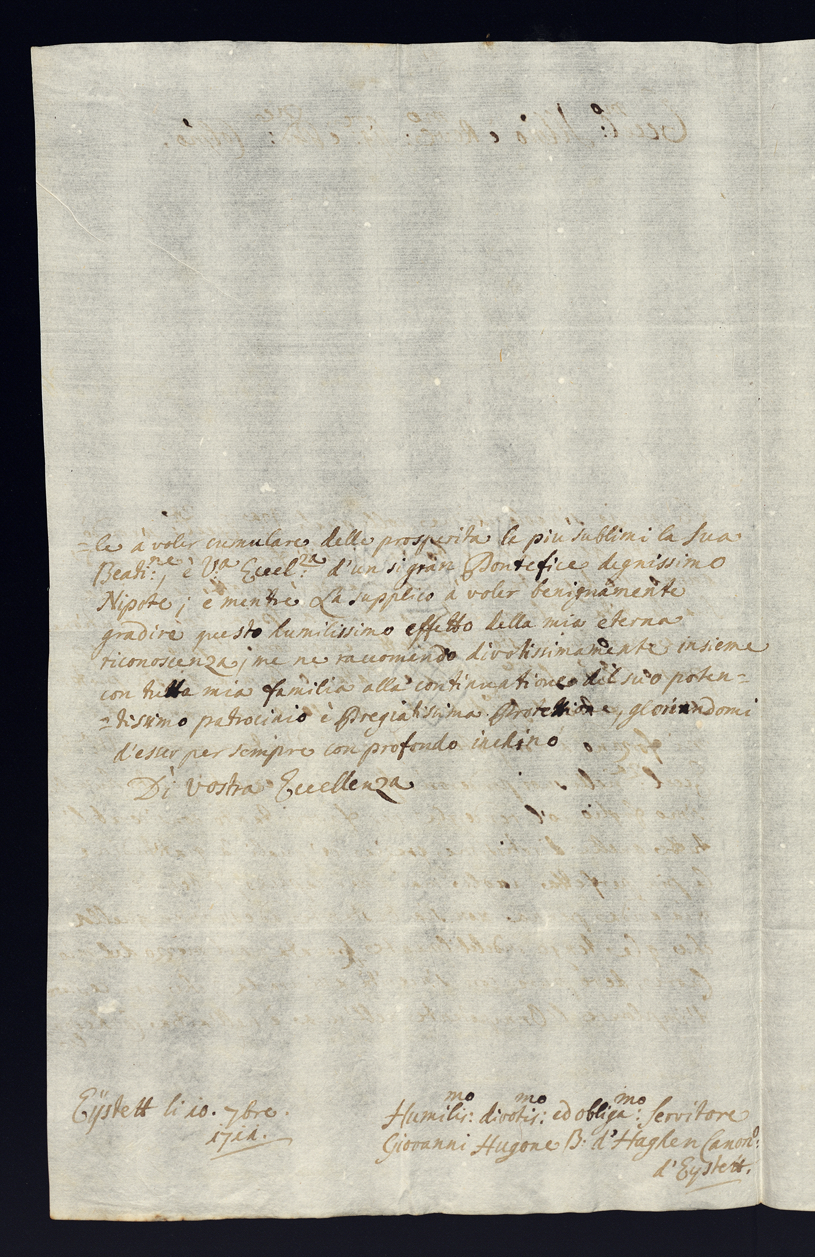 =le à voler cumulare delle prosperita le piu sublimi la Sua
Beati:ne, è V:a Eccel:za d'un si gran Pontefice degnissimo
Nipote; è mentre La supplico à voler benignamente
gradire questo humilissimo effetto della mia eterna
riconoscenza; me ne raccomando divotissimamente insieme
con tutta mia familia alla continuatione del suo poten=
=tissimo patrocinio è Pregiatissima Protettione, gloriandomi
d'esser per sempre con profondo inchino
Di Vostra Eccellenza
Eÿstett li 10. 7bre.
Humilis:mo divotis:mo ed obliga:mo servitore
Giovanni Hugone B. d'Haghen Canon:o
d'Eystett.